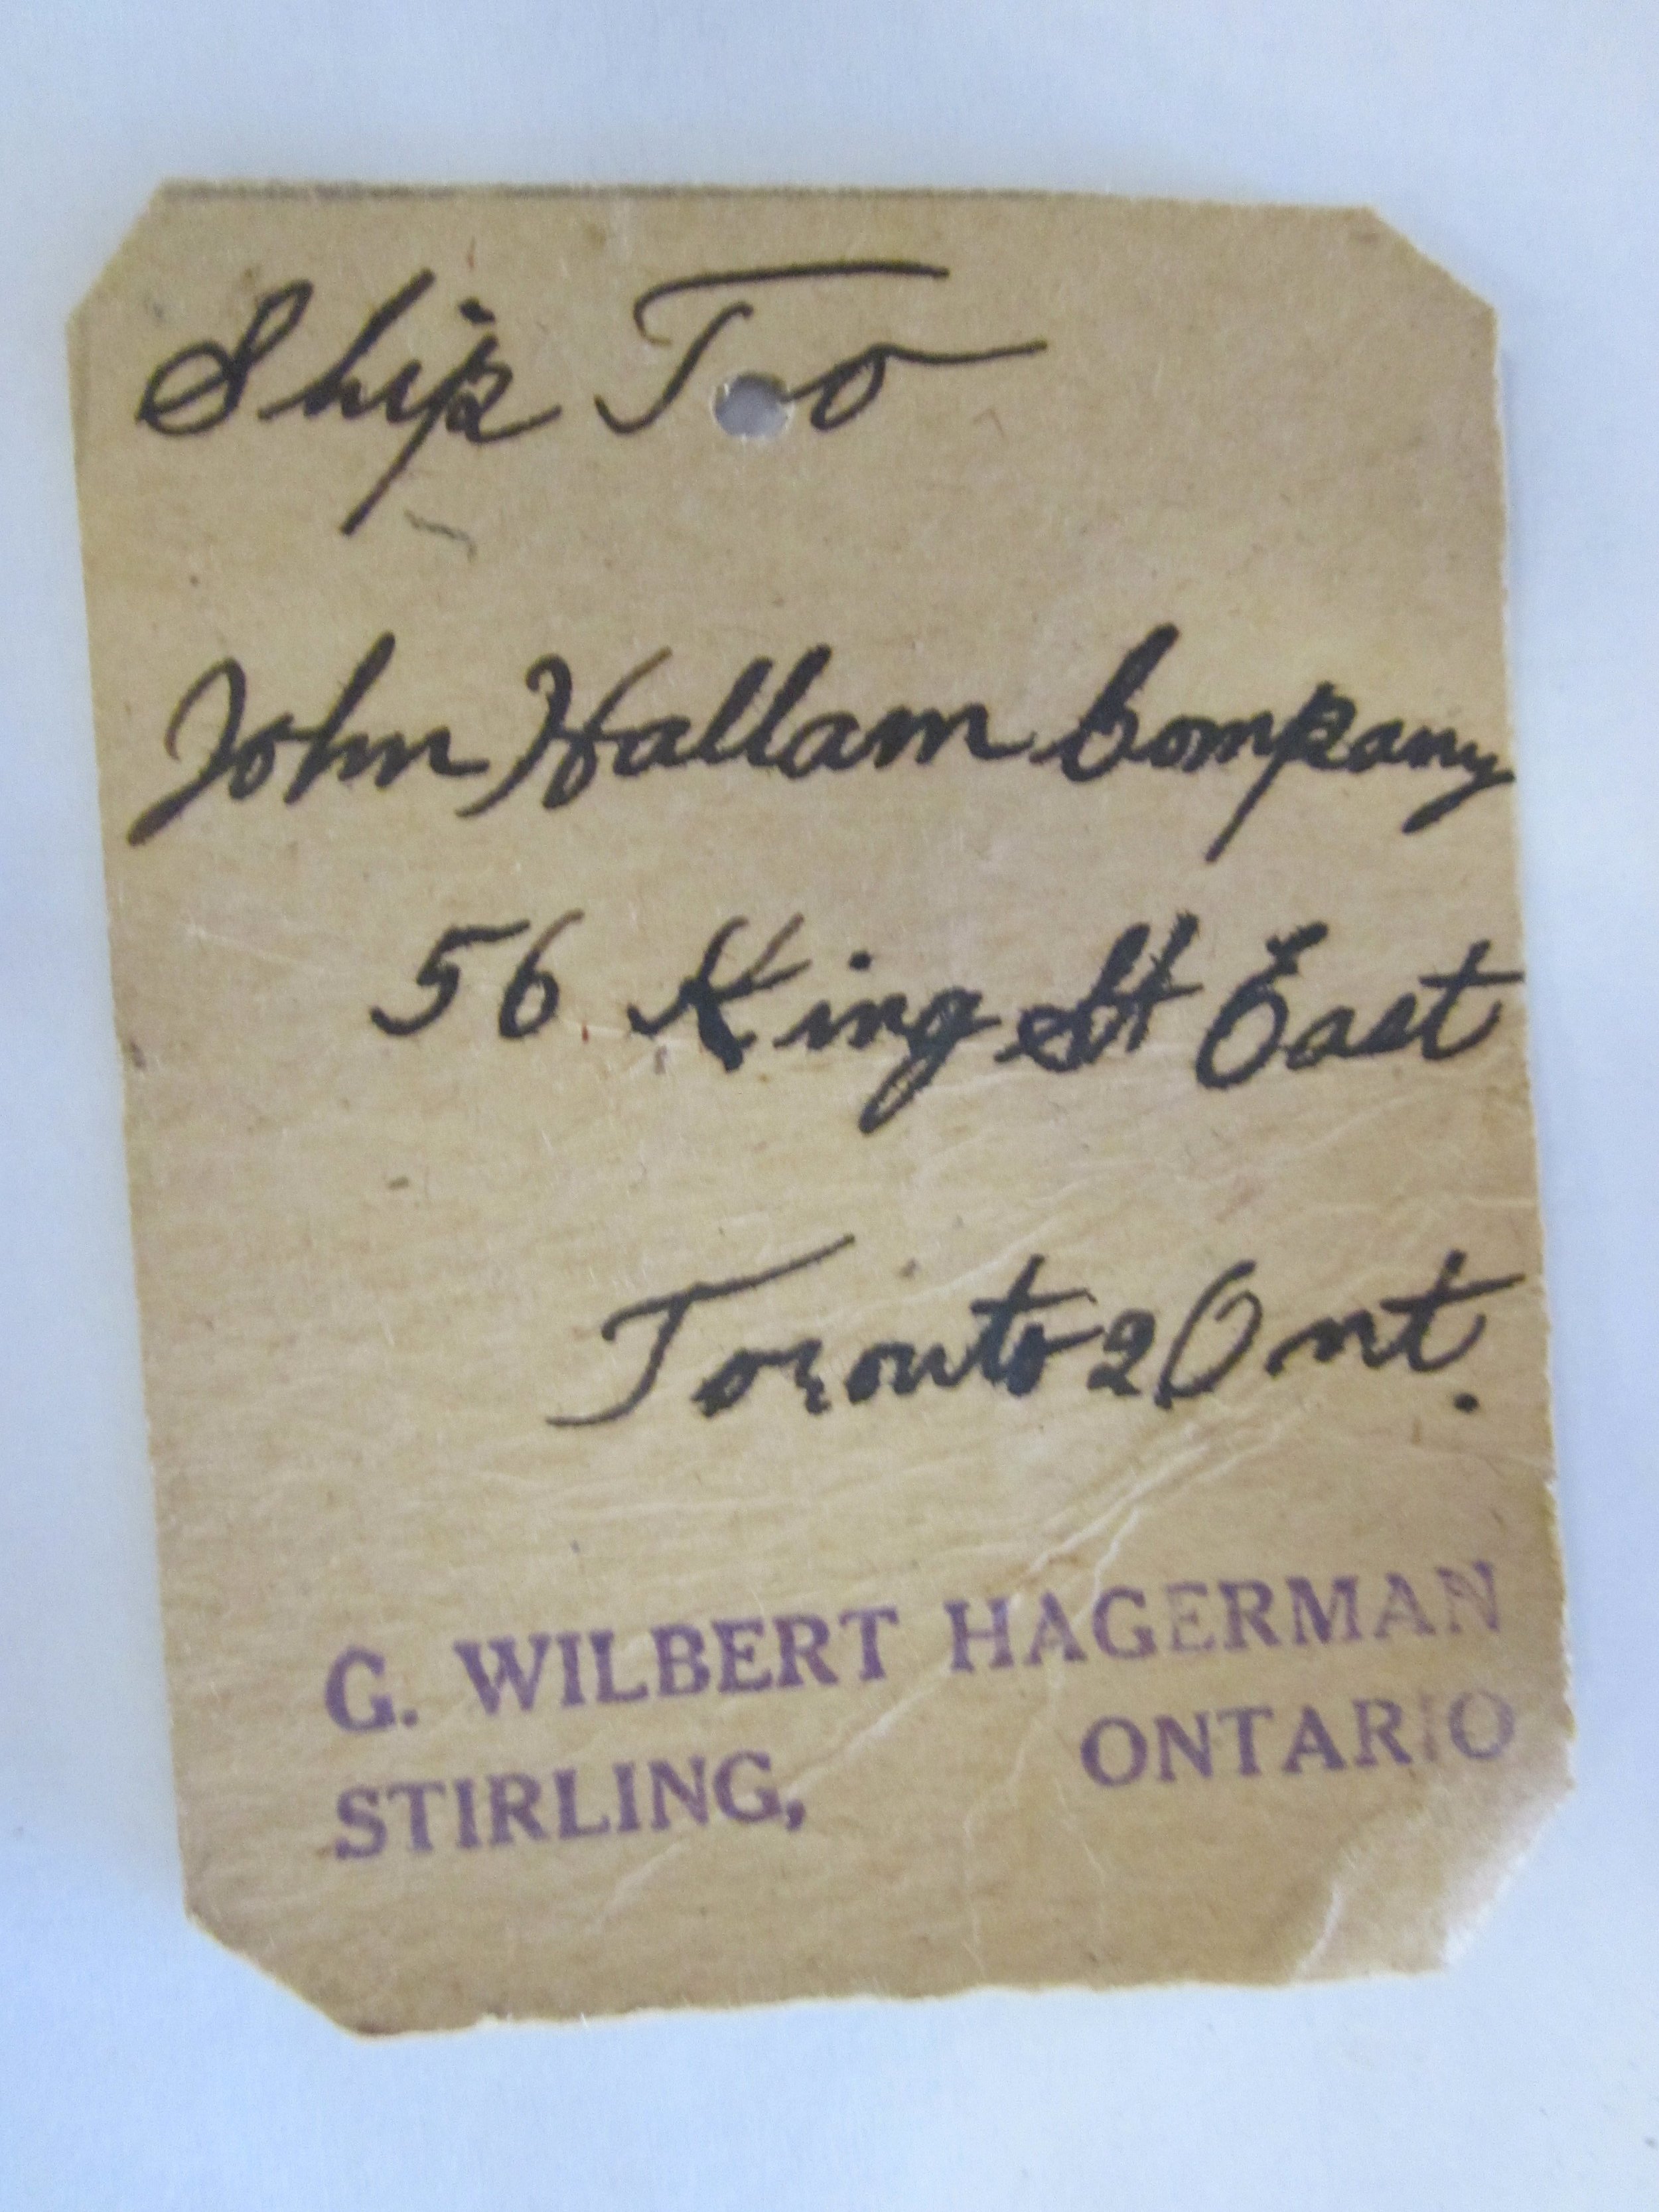 Ship To
John Hallam Company
56 King St East
Toronto 2 Ont.
G. WILBERT HAGERMAN
STIRLING, ONTARIO